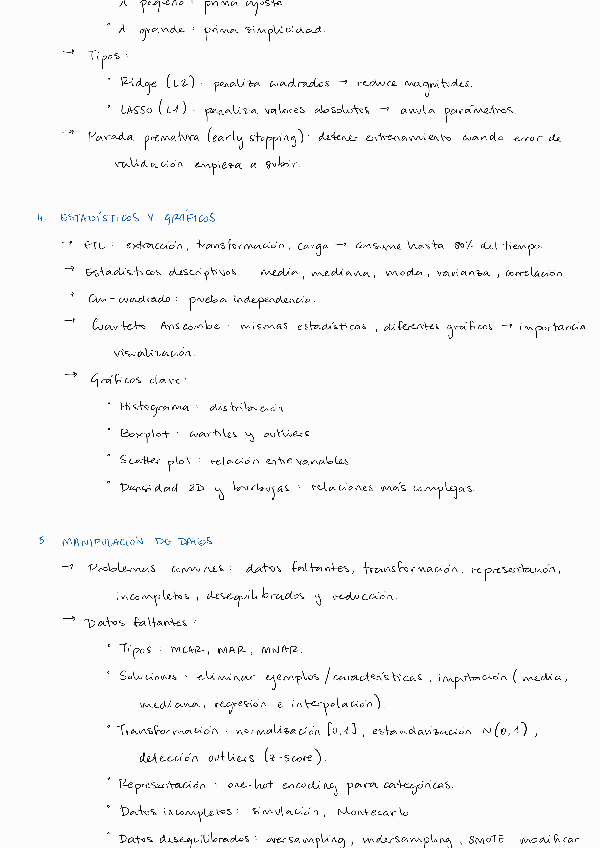 λ pequeño : prima ajuste
• λ grande : prima simplicidad.
→ Tipos :
• Ridge (L2) : penaliza cuadrados → reduce magnitudes.
• LASSO (L1) : penaliza valores absolutos → anula parámetros.
→ Parada prematura (early stopping) : detener entrenamiento cuando error de
validación empieza a subir.
4. ESTADÍSTICOS Y GRÁFICOS
→ ETL : extracción, transformación, carga → consume hasta 80% del tiempo.
→ Estadísticos descriptivos : media, mediana, moda, varianza, correlación
• Chi-cuadrado : prueba independencia.
→ Cuarteto Anscombe : mismas estadísticas, diferentes gráficos → importancia
visualización.
→ Gráficos clave :
• Histograma : distribución
• Boxplot : cuartiles y outliers
• Scatter plot : relación entre variables
• Densidad 2D y burbujas : relaciones más complejas.
5. MANIPULACIÓN DE DATOS
→ Problemas comunes : datos faltantes, transformación, representación,
incompletos, desequilibrados y reducción.
→ Datos faltantes :
• Tipos : MCAR, MAR, MNAR.
• Soluciones : eliminar ejemplos/características, imputación (media,
mediana, regresión e interpolación)
• Transformación : normalización [0,1], estandarización N(0,1),
detección outliers (z-score).
• Representación : one-hot encoding para categóricas.
• Datos incompletos : simulación, Montecarlo
• Datos desequilibrados : oversampling, undersampling, SMOTE, modificar